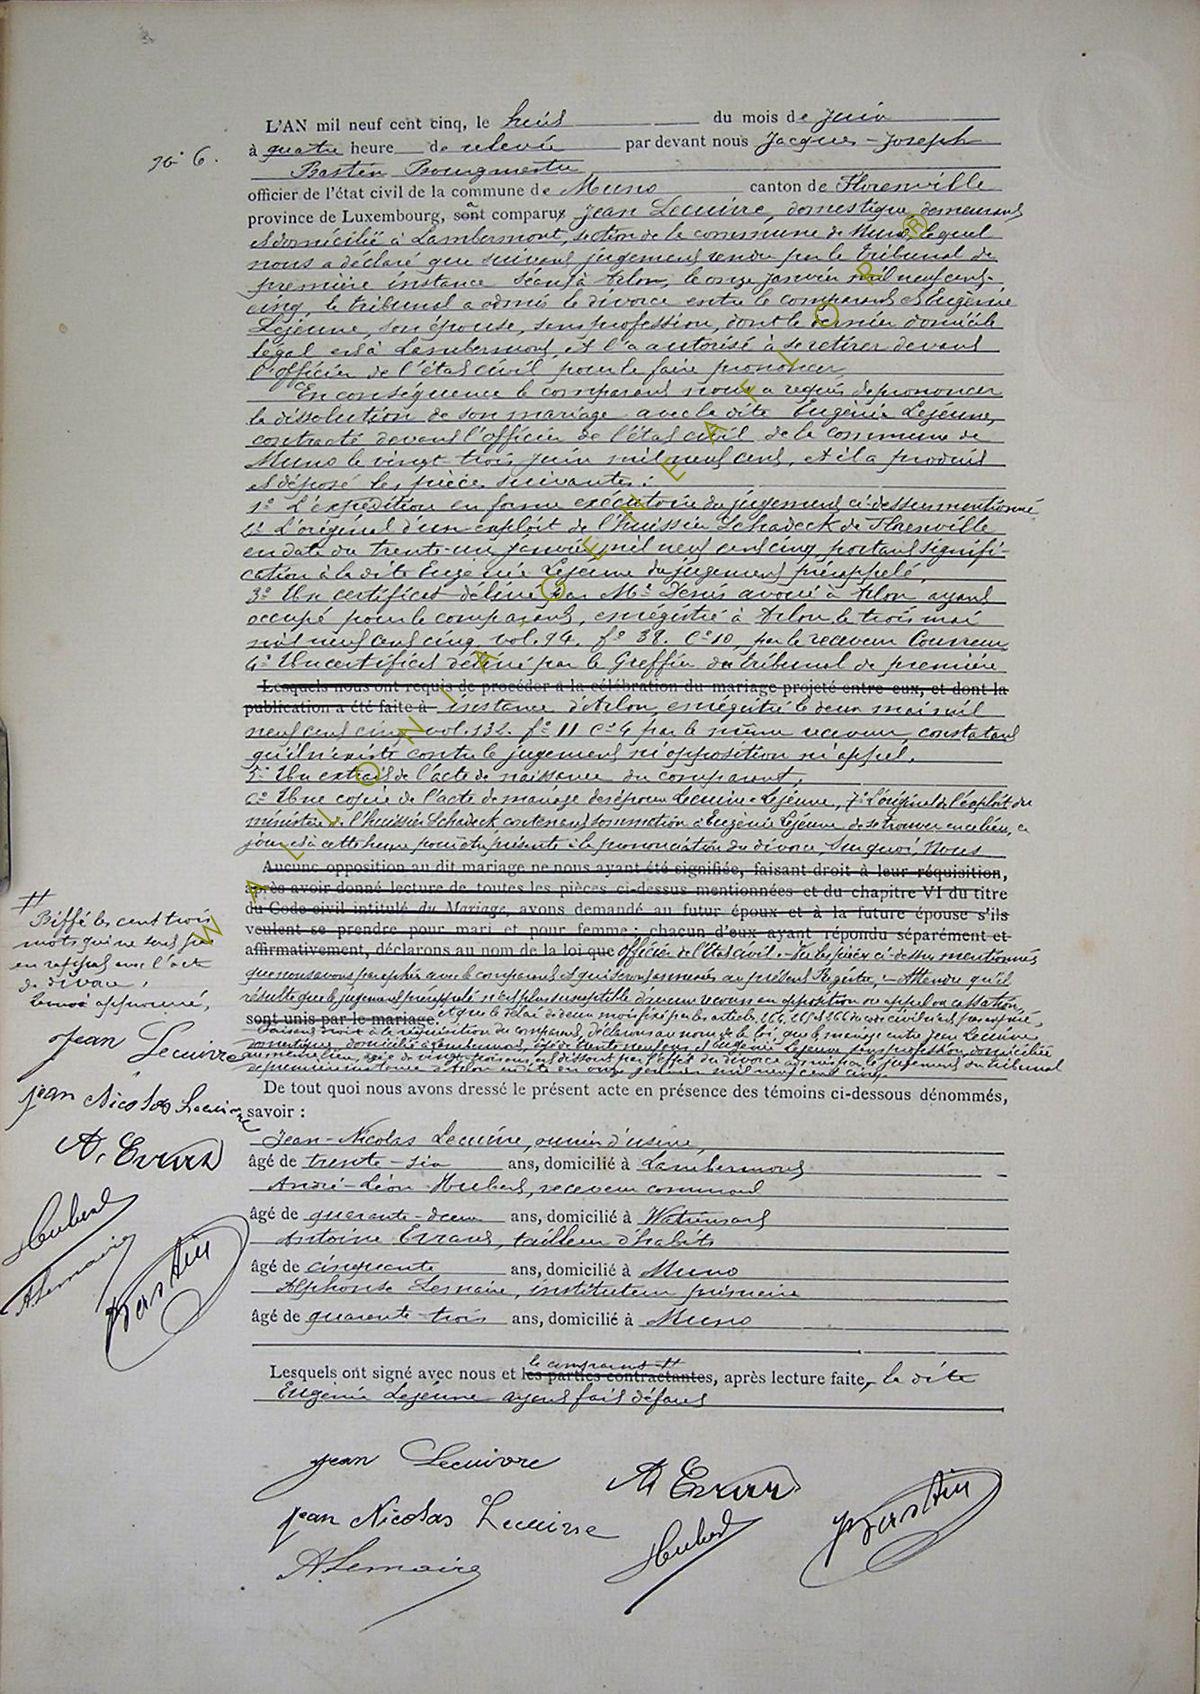 N° 6.
L'AN mil neuf cent cinq, le huit du mois de juin
à quatre heure de relevée par devant nous Jacques-Joseph
Bastin Bourgmestre
officier de l'état civil de la commune de Muno canton de Florenville
province de Luxembourg, a comparu Jean Lecuivre, domestique, demeurant
et domicilié à Lambermont, section de la commune de Muno, lequel
nous a déclaré que suivant jugement rendu par le tribunal de
première instance séant à Arlon, le onze janvier mil neuf cent-
cinq, le tribunal a admis le divorce entre le comparant et Eugénie
Lejeune, son épouse, sans profession, dont le dernier domicile
légal est à Lambermont, et l'a autorisé à se retirer devant
l'officier de l'état civil pour le faire prononcer.
En conséquence le comparant nous a requis de prononcer
la dissolution de son mariage avec la dite Eugénie Lejeune,
contracté devant l'officier de l'état civil de la commune de
Muno le vingt-trois juin mil neuf cent, et il a produit
et déposé les pièces suivantes :
1° L'expédition en forme exécutoire du jugement ci-dessus mentionné
2° L'original d'un exploit de l'huissier Schadeck de Florenville
en date du trente-un janvier mil neuf cent cinq portant signifi-
cation à la dite Eugénie Lejeune du jugement préappelé,
3° Un certificat délivré par Me Denis avoué à Arlon ayant
occupé pour le comparant, enrégistré à Arlon le trois mai
mil neuf cent cinq vol. 94. f° 38. c° 10, par le receveur Courreur
4° Un certificat délivré par le Greffier du tribunal de première
Lesquels nous ont requis de procéder à la célébration du mariage projeté entre eux, et dont la
publication a été faite à instance d'Arlon, enrégistré le deux mai mil
neuf cent cinq vol. 132. f° 11 c° 4 par le même receveur, constatant
qu'il n'existe contre le jugement ni opposition ni appel.
5° Un extrait de l'acte de naissance du comparant,
6° Une copie de l'acte de mariage des époux Lecuivre-Lejeune, 7° L'original de l'exploit du
ministère de l'huissier Schadeck contenant sommation à Eugénie Lejeune de se trouver en ce lieu, ce
jour et à cette heure pour être présente à la prononciation du divorce. Sur quoi, Nous
Aucune opposition au dit mariage ne nous ayant été signifiée, faisant droit à leur réquisition,
après avoir donné lecture de toutes les pièces ci-dessus mentionnées et du chapitre VI du titre
du Code civil intitulé du Mariage, avons demandé au futur époux et à la future épouse s'ils
veulent se prendre pour mari et pour femme : chacun d'eux ayant répondu séparément et
affirmativement, déclarons au nom de la loi que officier de l'état civil. - Vu les pièces ci-dessus mentionnées
que nous avons paraphées avec le comparant et qui seront annexées au présent Registre, - Attendu qu'il
résulte que le jugement préappelé n'est plus susceptible d'aucun recours en opposition ou appel ou cassation,
sont unis par le mariage. et que le délai de deux mois fixé par les articles 264, 265 et 266 du code civil n'est pas expiré,
Faisant droit à la réquisition du comparant, déclarons au nom de la loi, que le mariage entre Jean Lecuivre
domestique, domicilié à Lambermont, âgé de trente neuf ans, et Eugénie Lejeune sans profession, domiciliée
au même lieu, âgée de vingt-trois ans, est dissout par l'effet du divorce admis par le jugement du tribunal
de première instance d'Arlon en date du onze janvier mil neuf cent cinq.
De tout quoi nous avons dressé le présent acte en présence des témoins ci-dessous dénommés,
savoir :
Jean-Nicolas Lecuivre, ouvrier d'usine,
âgé de trente-six ans, domicilié à Lambermont,
André-Léon Hubert, receveur communal
âgé de quarante-deux ans, domicilié à Watrinsart
Antoine Evrard, tailleur d'habits
âgé de cinquante ans, domicilié à Muno
Alphonse Lemaire, instituteur primaire
âgé de quarante-trois ans, domicilié à Muno
le comparant #
Lesquels ont signé avec nous et les parties contractantes, après lecture faite, la dite
Eugénie Lejeune ayant fait défaut
#
Biffé les cent trois
mots qui ne sont pas
en rapport avec l'acte
de divorce,
Renvoi approuvé,
Jean Lecuivre
Jean Nicolas Lecuivre
A. Evrard
Hubert
A Lemaire
Bastin
Jean Lecuivre
A Evrard
Bastin
Jean Nicolas Lecuivre
Hubert
A Lemaire